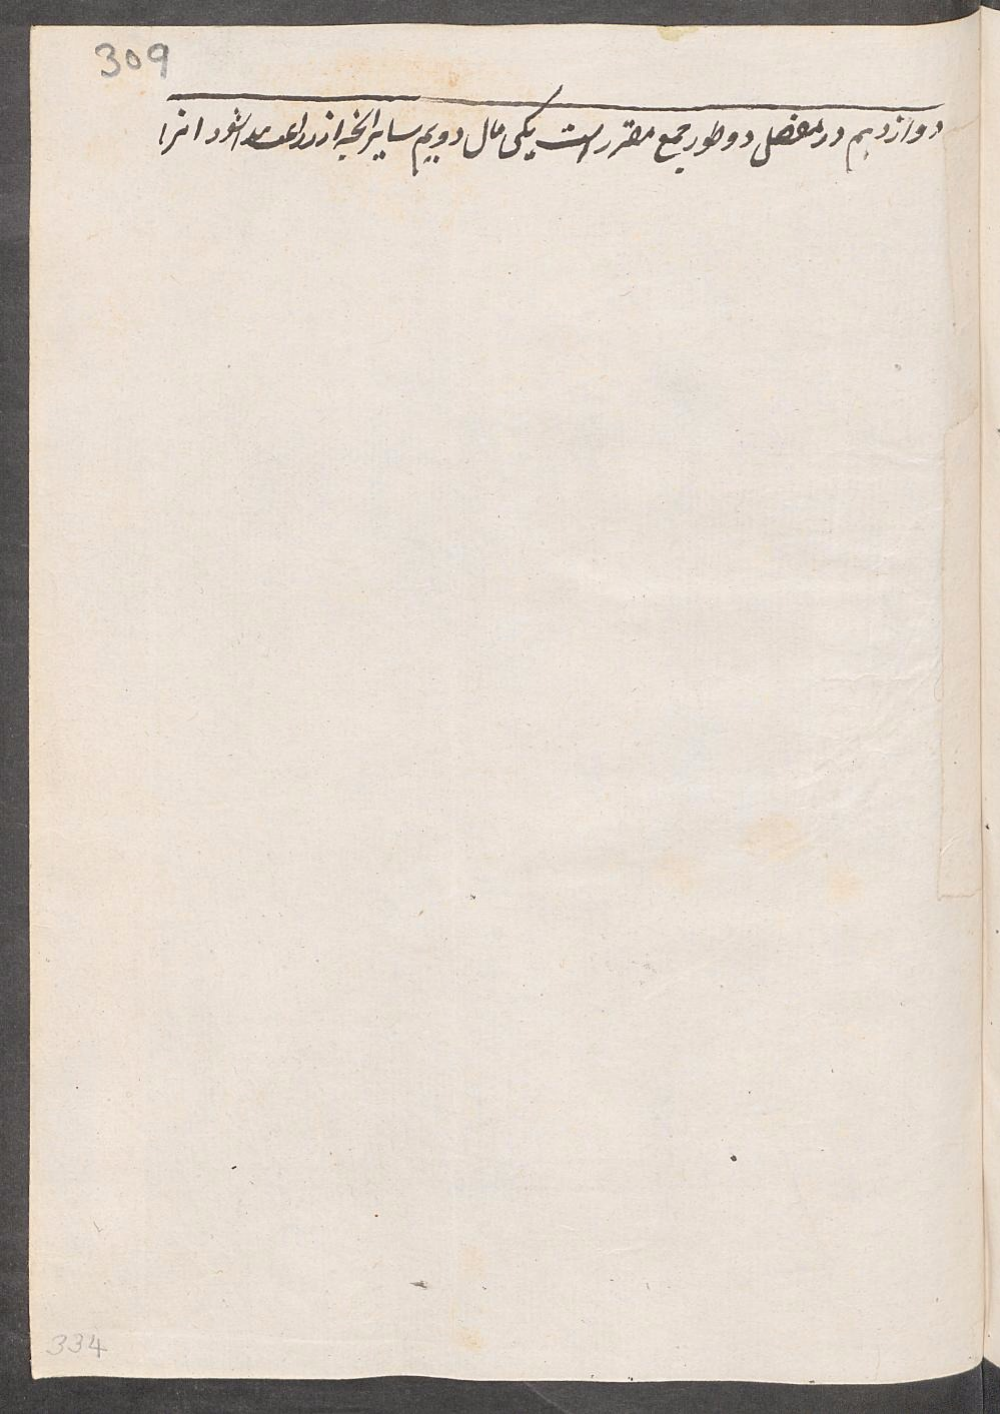 309
دوازدهم در مفصل دو طور جمع مقرر است یکی مال دویم سایر انچه از زراعت پیدا شود انرا
334